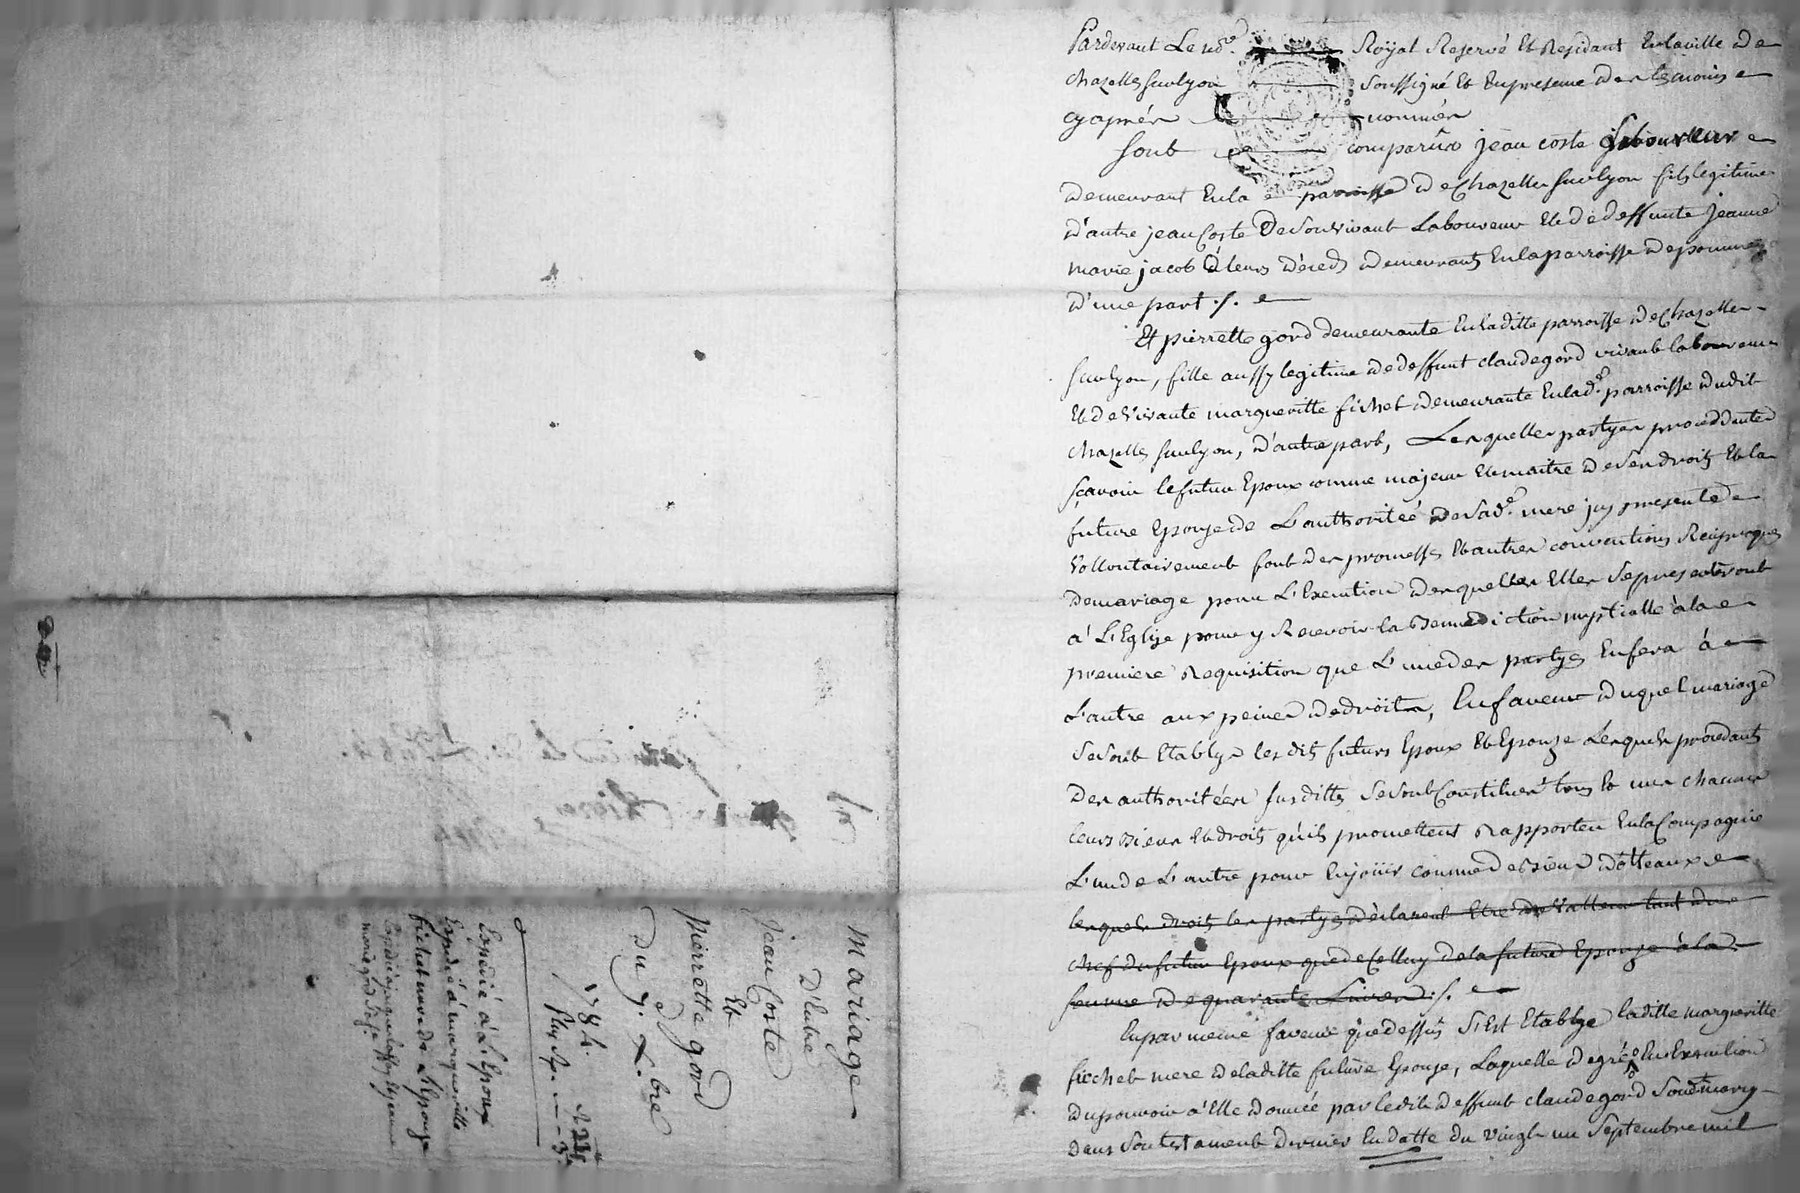 Pardevant Le no.re Royal Reservé Et Residant En la ville de
chazelles sur lyon soussigné Et En presence des temoins
cy après nommés
sont comparûs jean coste laboureur
demeurant En la parroisse de chazelles sur lyon fils legitime
d'autre jean Coste de son vivant Laboureur Et de deffunte jeanne
marie jacob à leurs décéds demeurants En la parroisse de pomeys
d'une part ./.
Et pierrette gord demeurante En laditte parroisse de chazelles
sur lyon, fille aussy legitime de deffunt claude gord vivant laboureur
Et de Vivante margueritte fichet demeurante En lad.e parroisse dudit
chazelles sur lyon, d'autre part, Lesquelles partyes proceddantes
sçavoir le futur Epoux comme majeur Et maitre de ses droits Et la
future Epouse de L'authoritée de Sad.e mere jcy presente
Vollontairement font des promesses Et autres conventions Reciproques
de mariage pour L'Execution desquelles Elles se presenteront
à L'Eglise pour y Recevoir la Bennediction nuptialle à la
premiere Requisition que L'une des partyes En fera à
L'autre aux peines de droit, En faveur duquel mariage
se sont Etablys lesdits futurs Epoux Et Epouze Lesquels procedants
des authoritées susdittes se sont Constitués tous Et un chacun
leurs Biens Et droits qu'ils promettent Rapporter En la Compagnie
L'un de L'autre pour En joüir comme de Biens dotteaux
lesquels droits les partyes déclarent Etre de Valleur tant du
chef du futur Epoux que de Celluy de la future Epouze à la
somme de quarante Livres ./.
En par meme faveur que dessus S'Est Etablye laditte margueritte
ficchet mere de laditte future Epouse, Laquelle de gré En Execution
du pouvoir à Elle donnée par ledit deffunt claude gord Son mary
dans Son testament dernier En datte du vingt un Septembre mil
mariage
D'Entre
Jean Coste
Et
pierrette gord
Du 7. 8.bre
1784.
Expedié à L'Epoux
Expedié à margueritte
fichet mere de L'Epouze